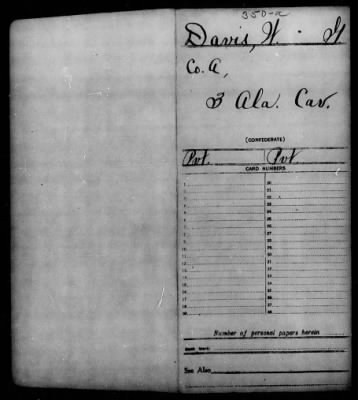 350-a
Davis, W.
Co. A,
3 Ala. Cav.
(CONFEDERATE)
Pvt. Pvt.
CARD NUMBERS
1 20
2 21
3 22
4 23
5 24
6 25
7 26
8 27
9 28
10 29
11 30
12 31
13 32
14 33
15 34
16 35
17 36
18 37
19 38
Number of personal papers herein
Book Mark:
See Also